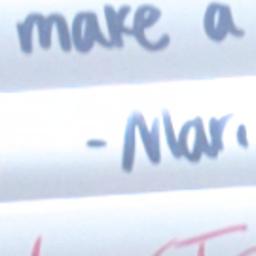 make a
- Mar